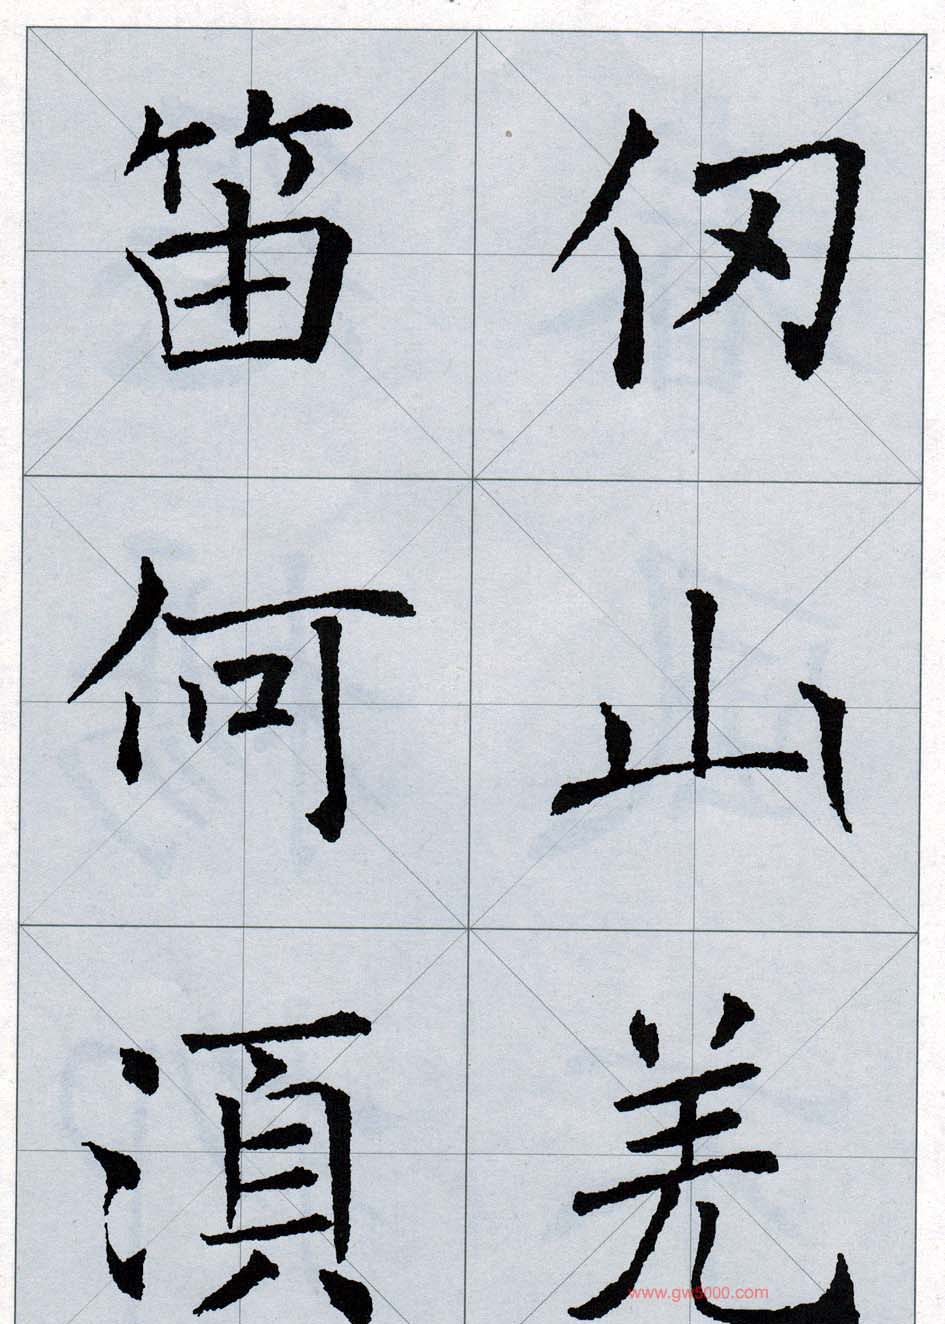 仞山羌
笛何湏
www.gw5000.com